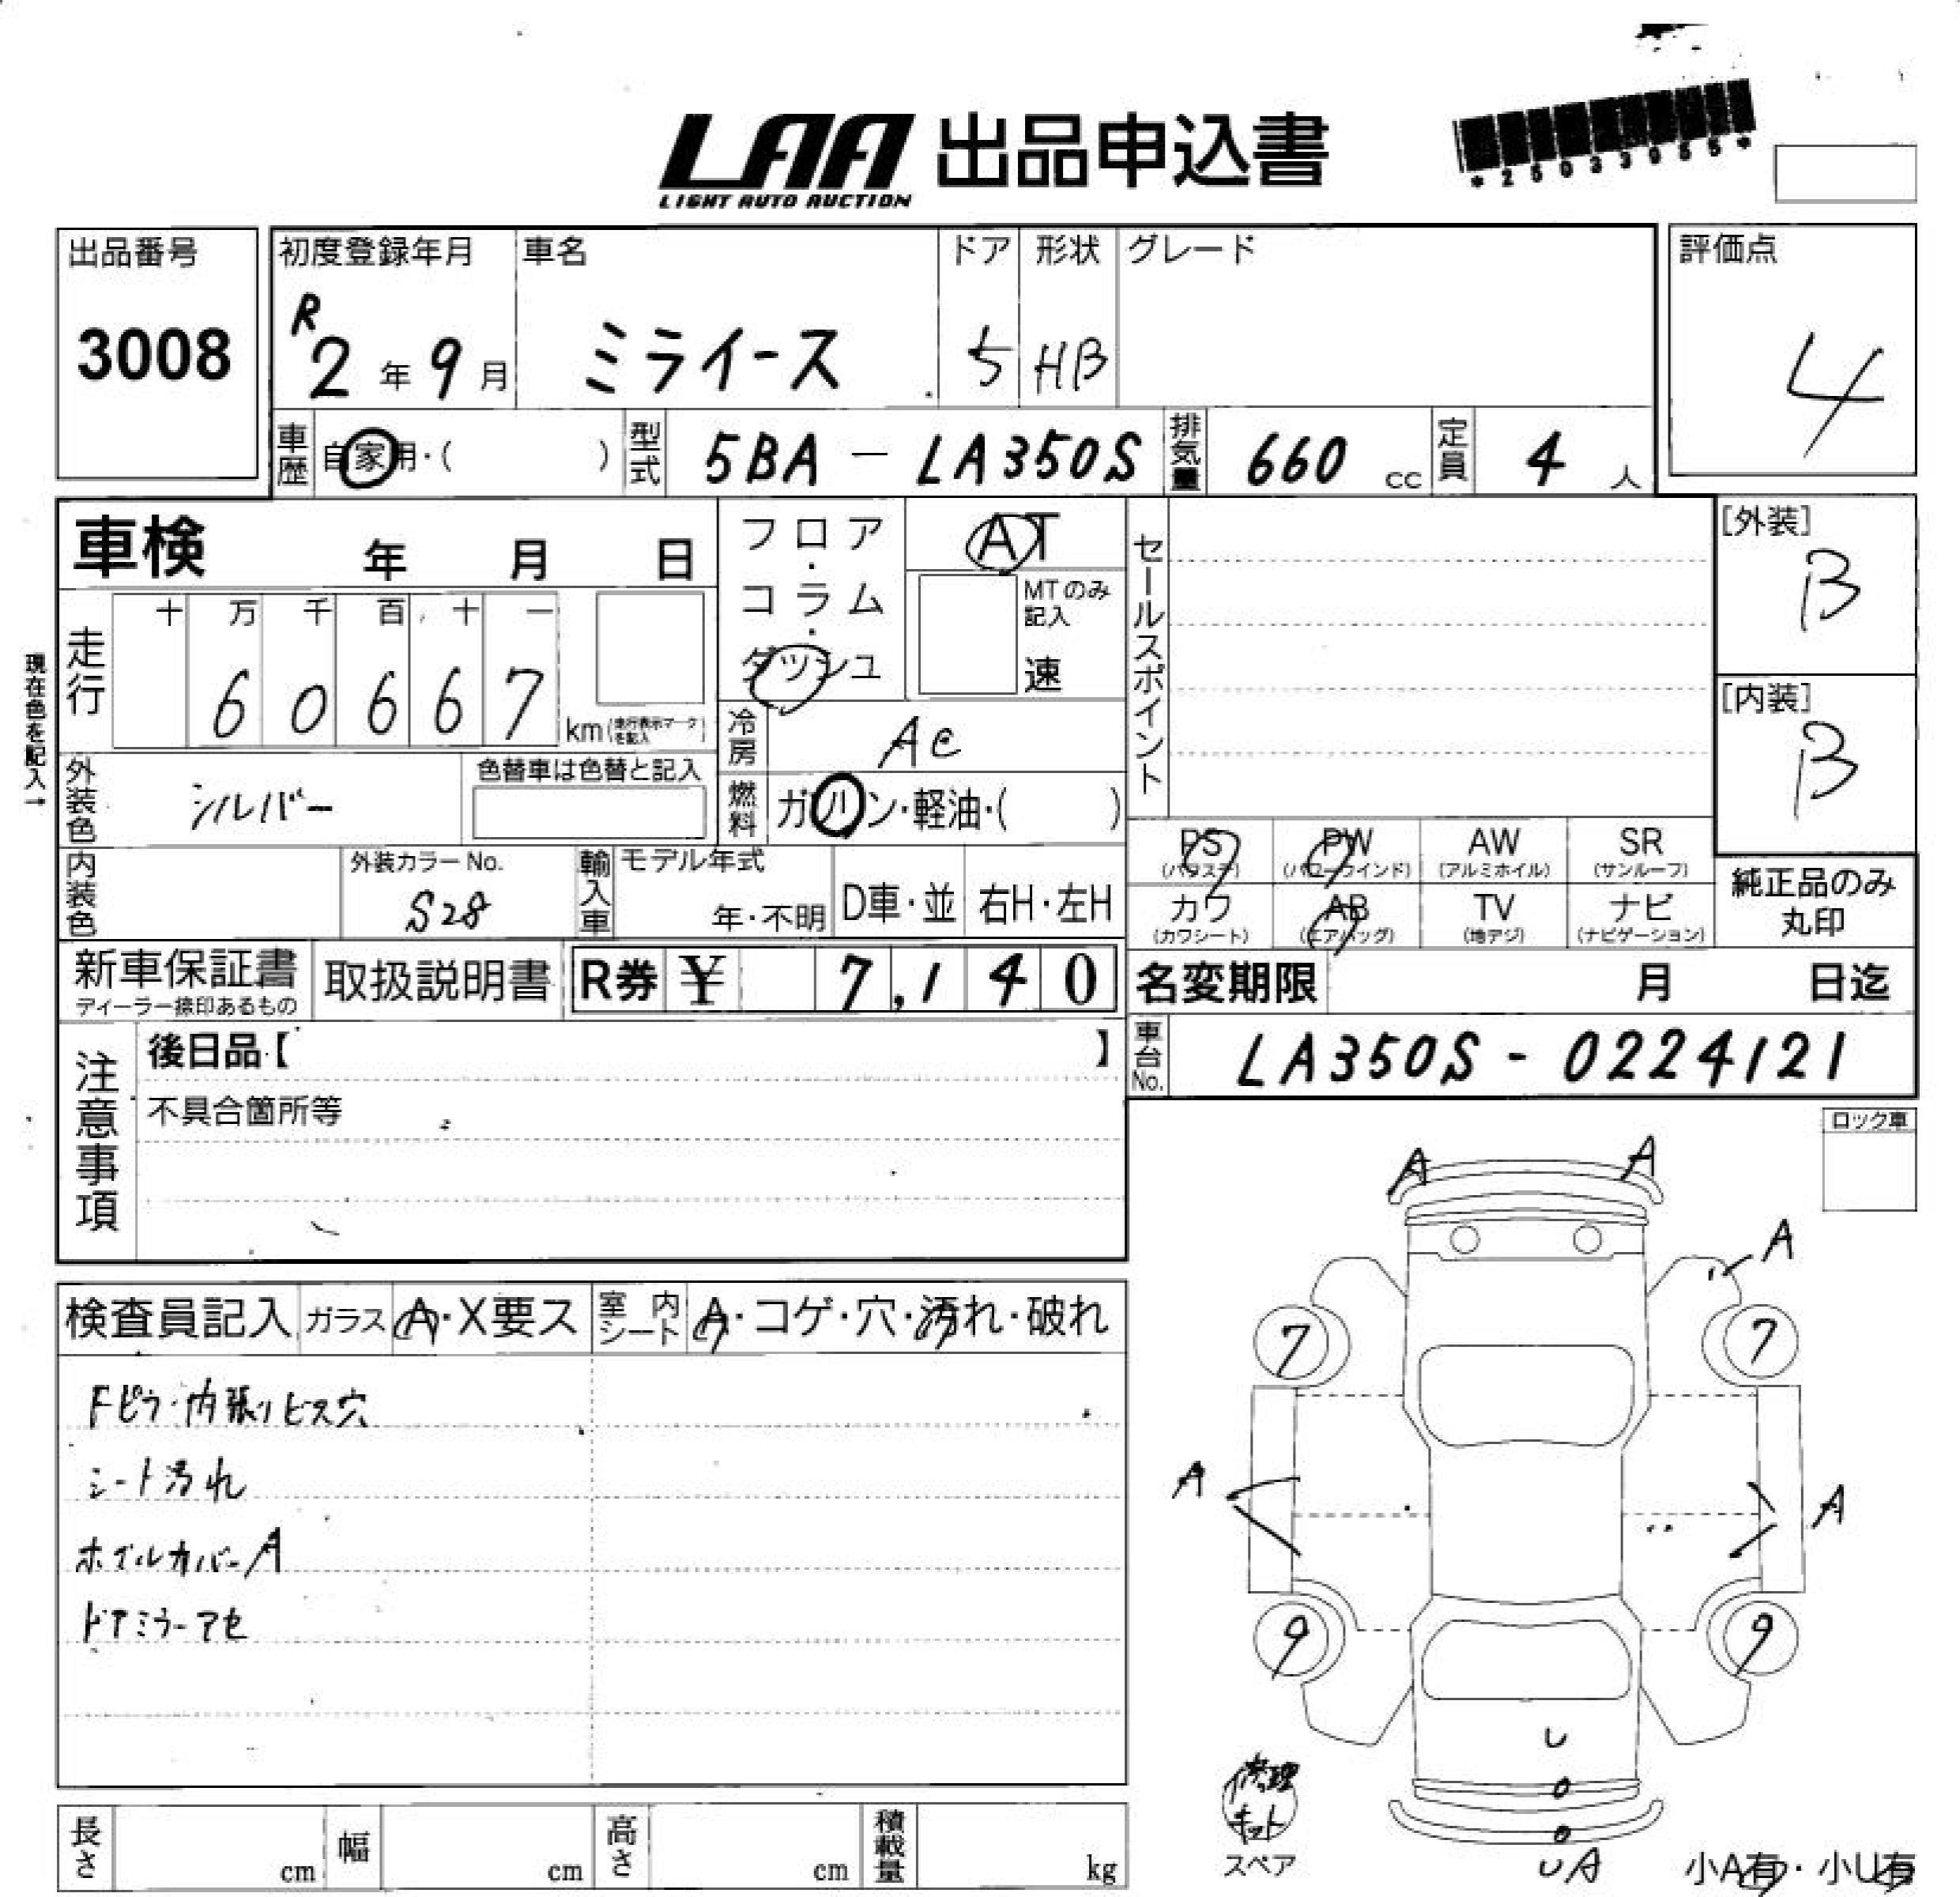 LAA 出品申込書
LIGHT AUTO AUCTION
*25033055*
出品番号
3008
初度登録年月
R2年9月
車名
ミライース
ドア
5
形状
HB
グレード
評価点
4
車歴 自家用・( )
型式 5BA-LA350S
排気量 660 cc
定員 4 人
車検 年 月 日
フロア・コラム・ダッシュ
AT
MTのみ記入
速
セールスポイント
[外装]
B
[内装]
B
現在色を記入→
走行
十 万 千 百 十 一
6 0 6 6 7
km(走行表示マークを記入)
冷房 AC
外装色 シルバー
色替車は色替と記入
燃料 ガソリン・軽油・( )
内装色
外装カラーNo.
S28
輸入車
モデル年式
年・不明
D車・並
右H・左H
PS
(パワステ)
PW
(パワーウインド)
AW
(アルミホイル)
SR
(サンルーフ)
カワ
(カワシート)
AB
(エアバッグ)
TV
(地デジ)
ナビ
(ナビゲーション)
純正品のみ
丸印
新車保証書
ディーラー捺印あるもの
取扱説明書
R券 ¥ 7,140
名変期限 月 日迄
車台No. LA350S-0224121
注意事項
後日品【 】
不具合箇所等
ロック車
検査員記入
ガラス A・X要ス
室内シート A・コゲ・穴・汚れ・破れ
Fピラ・内張りビス穴
シート汚れ
ホイルカバーA
ドアミラーアセ
A A
A
7 7
A A
9 9
U
修理
キット
スペア
UA
小A有・小U有
長さ cm
幅 cm
高さ cm
積載量 kg